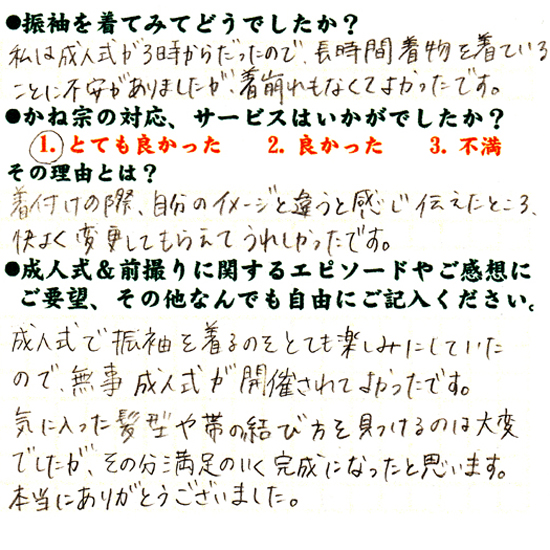 ●振袖を着てみてどうでしたか?
私は成人式が3時からだったので、長時間着物を着ている
ことに不安がありましたが、着崩れもなくてよかったです。
●かね宗の対応、サービスはいかがでしたか?
1. とても良かった 2. 良かった 3. 不満
その理由とは?
着付けの際、自分のイメージと違うと感じ伝えたところ、
快よく変更してもらえてうれしかったです。
●成人式&前撮りに関するエピソードやご感想に
ご要望、その他なんでも自由にご記入ください。
成人式で振袖を着るのをとても楽しみにしていた
ので、無事成人式が開催されてよかったです。
気に入った髪型や帯の結び方を見つけるのは大変
でしたが、その分満足のいく完成になったと思います。
本当にありがとうございました。